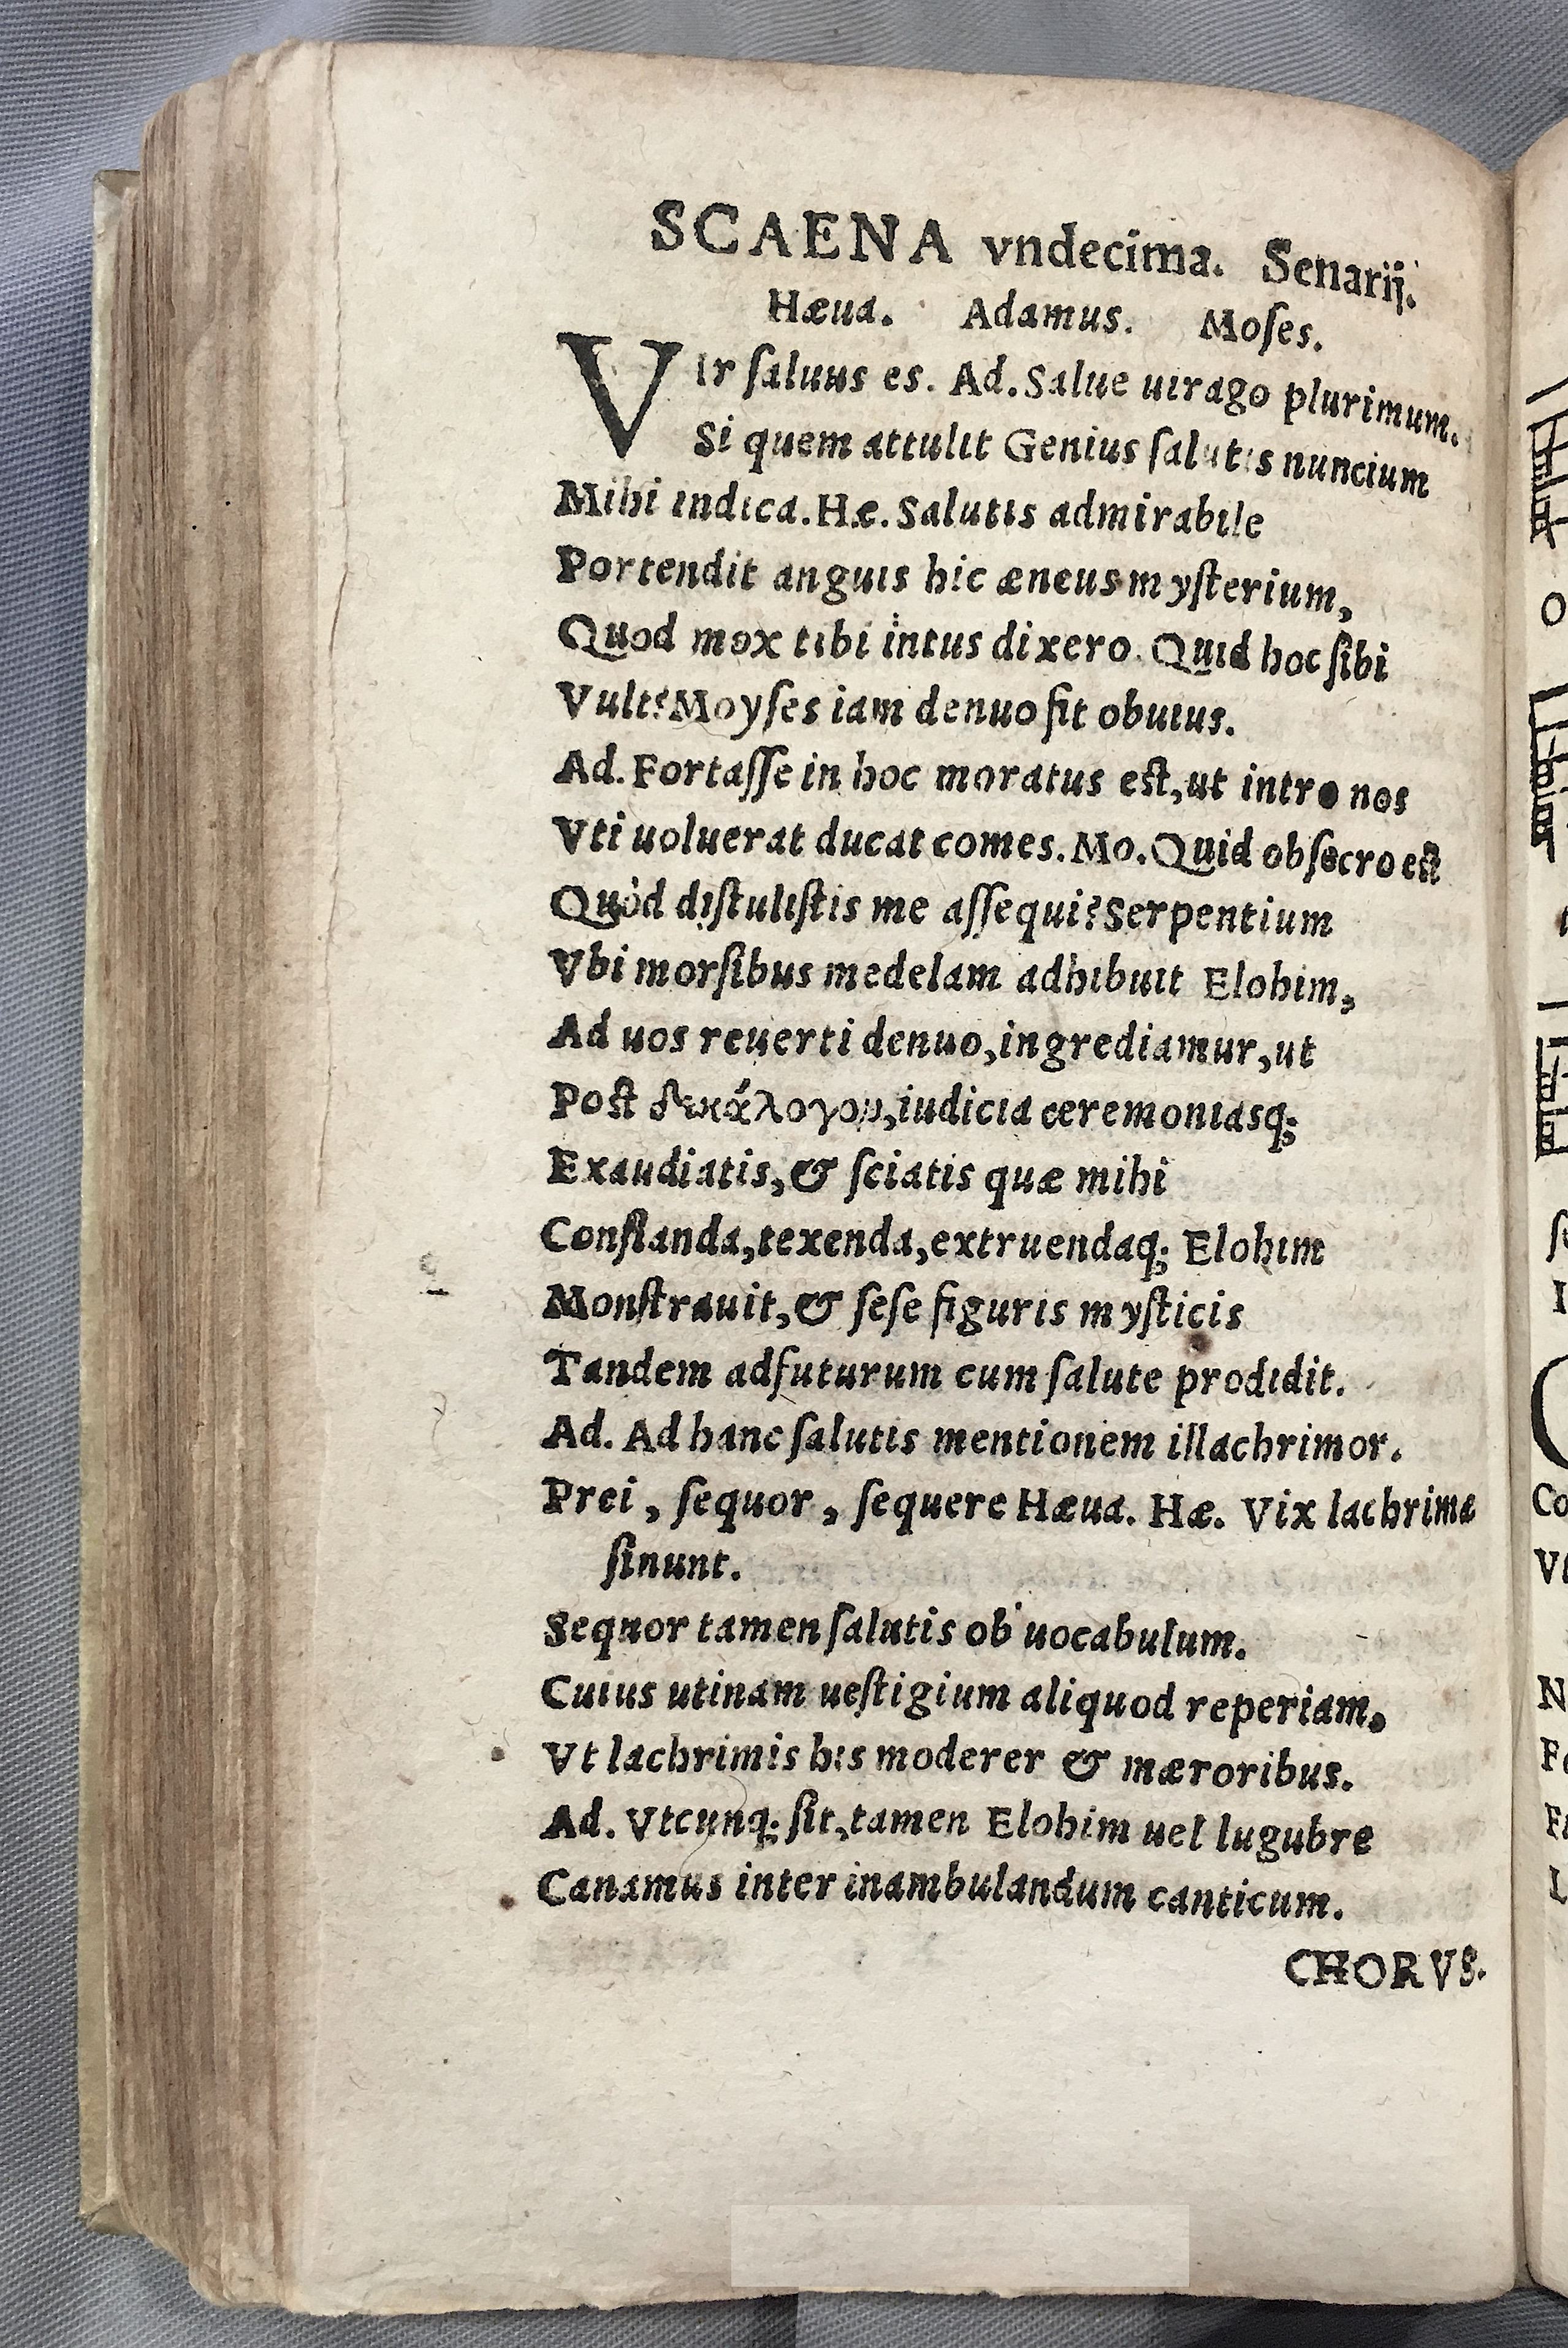 SCAENA vndecima. Senarij.
Hæua. Adamus. Moſes.
VIr ſaluus es. Ad. Salue uirago plurimum.
Si quem attulit Genius ſalutis nuncium
Mihi indica. Hæ. Salutis admirabile
Portendit anguis hic æneus myſterium,
Quod mox tibi intus dixero. Quid hoc ſibi
Vult? Moyſes iam denuo fit obuius.
Ad. Fortaſſe in hoc moratus eſt, ut intro nos
Vti uoluerat ducat comes. Mo. Quid obſecro eſt
Quòd diſtuliſtis me aſſequi? Serpentium
Vbi morſibus medelam adhibuit Elohim,
Ad uos reuerti denuo, ingrediamur, ut
Poſt δεκάλογον, iudicia ceremoniasq;
Exaudiatis, & ſciatis quæ mihi
Conflanda, texenda, extruendaq; Elohim
Monſtrauit, & ſeſe figuris myſticis
Tandem adfuturum cum ſalute prodidit.
Ad. Ad hanc ſalutis mentionem illachrimor.
Prei, ſequor, ſequere Hæua. Hæ. Vix lachrimæ
ſinunt.
Sequor tamen ſalutis ob uocabulum.
Cuius utinam ueſtigium aliquod reperiam,
Vt lachrimis his moderer & mæroribus.
Ad. Vtcunq; ſit, tamen Elohim uel lugubre
Canamus inter inambulandum canticum.
CHORVS.